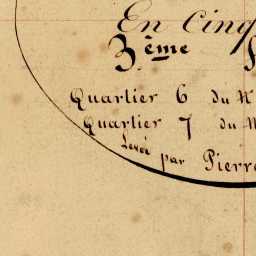 En Cinq
3ème
Quartier 6 du N
Quartier 7 du N
Levée par Pierre